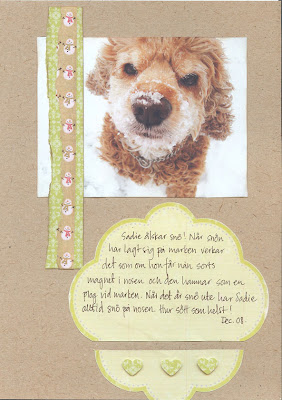 Sadie älskar snö! När snön
har lagt sig på marken verkar
det som om hon får nån sorts
magnet i nosen och den hamnar som en
plog vid marken. När det är snö ute har Sadie
alltid snö på nosen. Hur sött som helst!
Dec. 08.